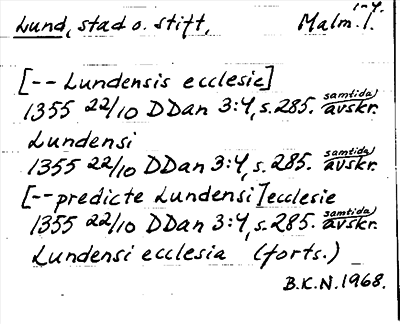 Lund, stad o. stift, Malm. l.
[-- Lundensis ecclesie]
1355 22/10 DDan 3:4, s. 285. samtida avskr.
Lundensi
1355 22/10 DDan 3:4, s. 285. samtida avskr.
[-- predicte Lundensi] ecclesie
1355 22/10 DDan 3:4, s. 285. samtida avskr.
Lundensi ecclesia (forts.)
B.K.N. 1968.